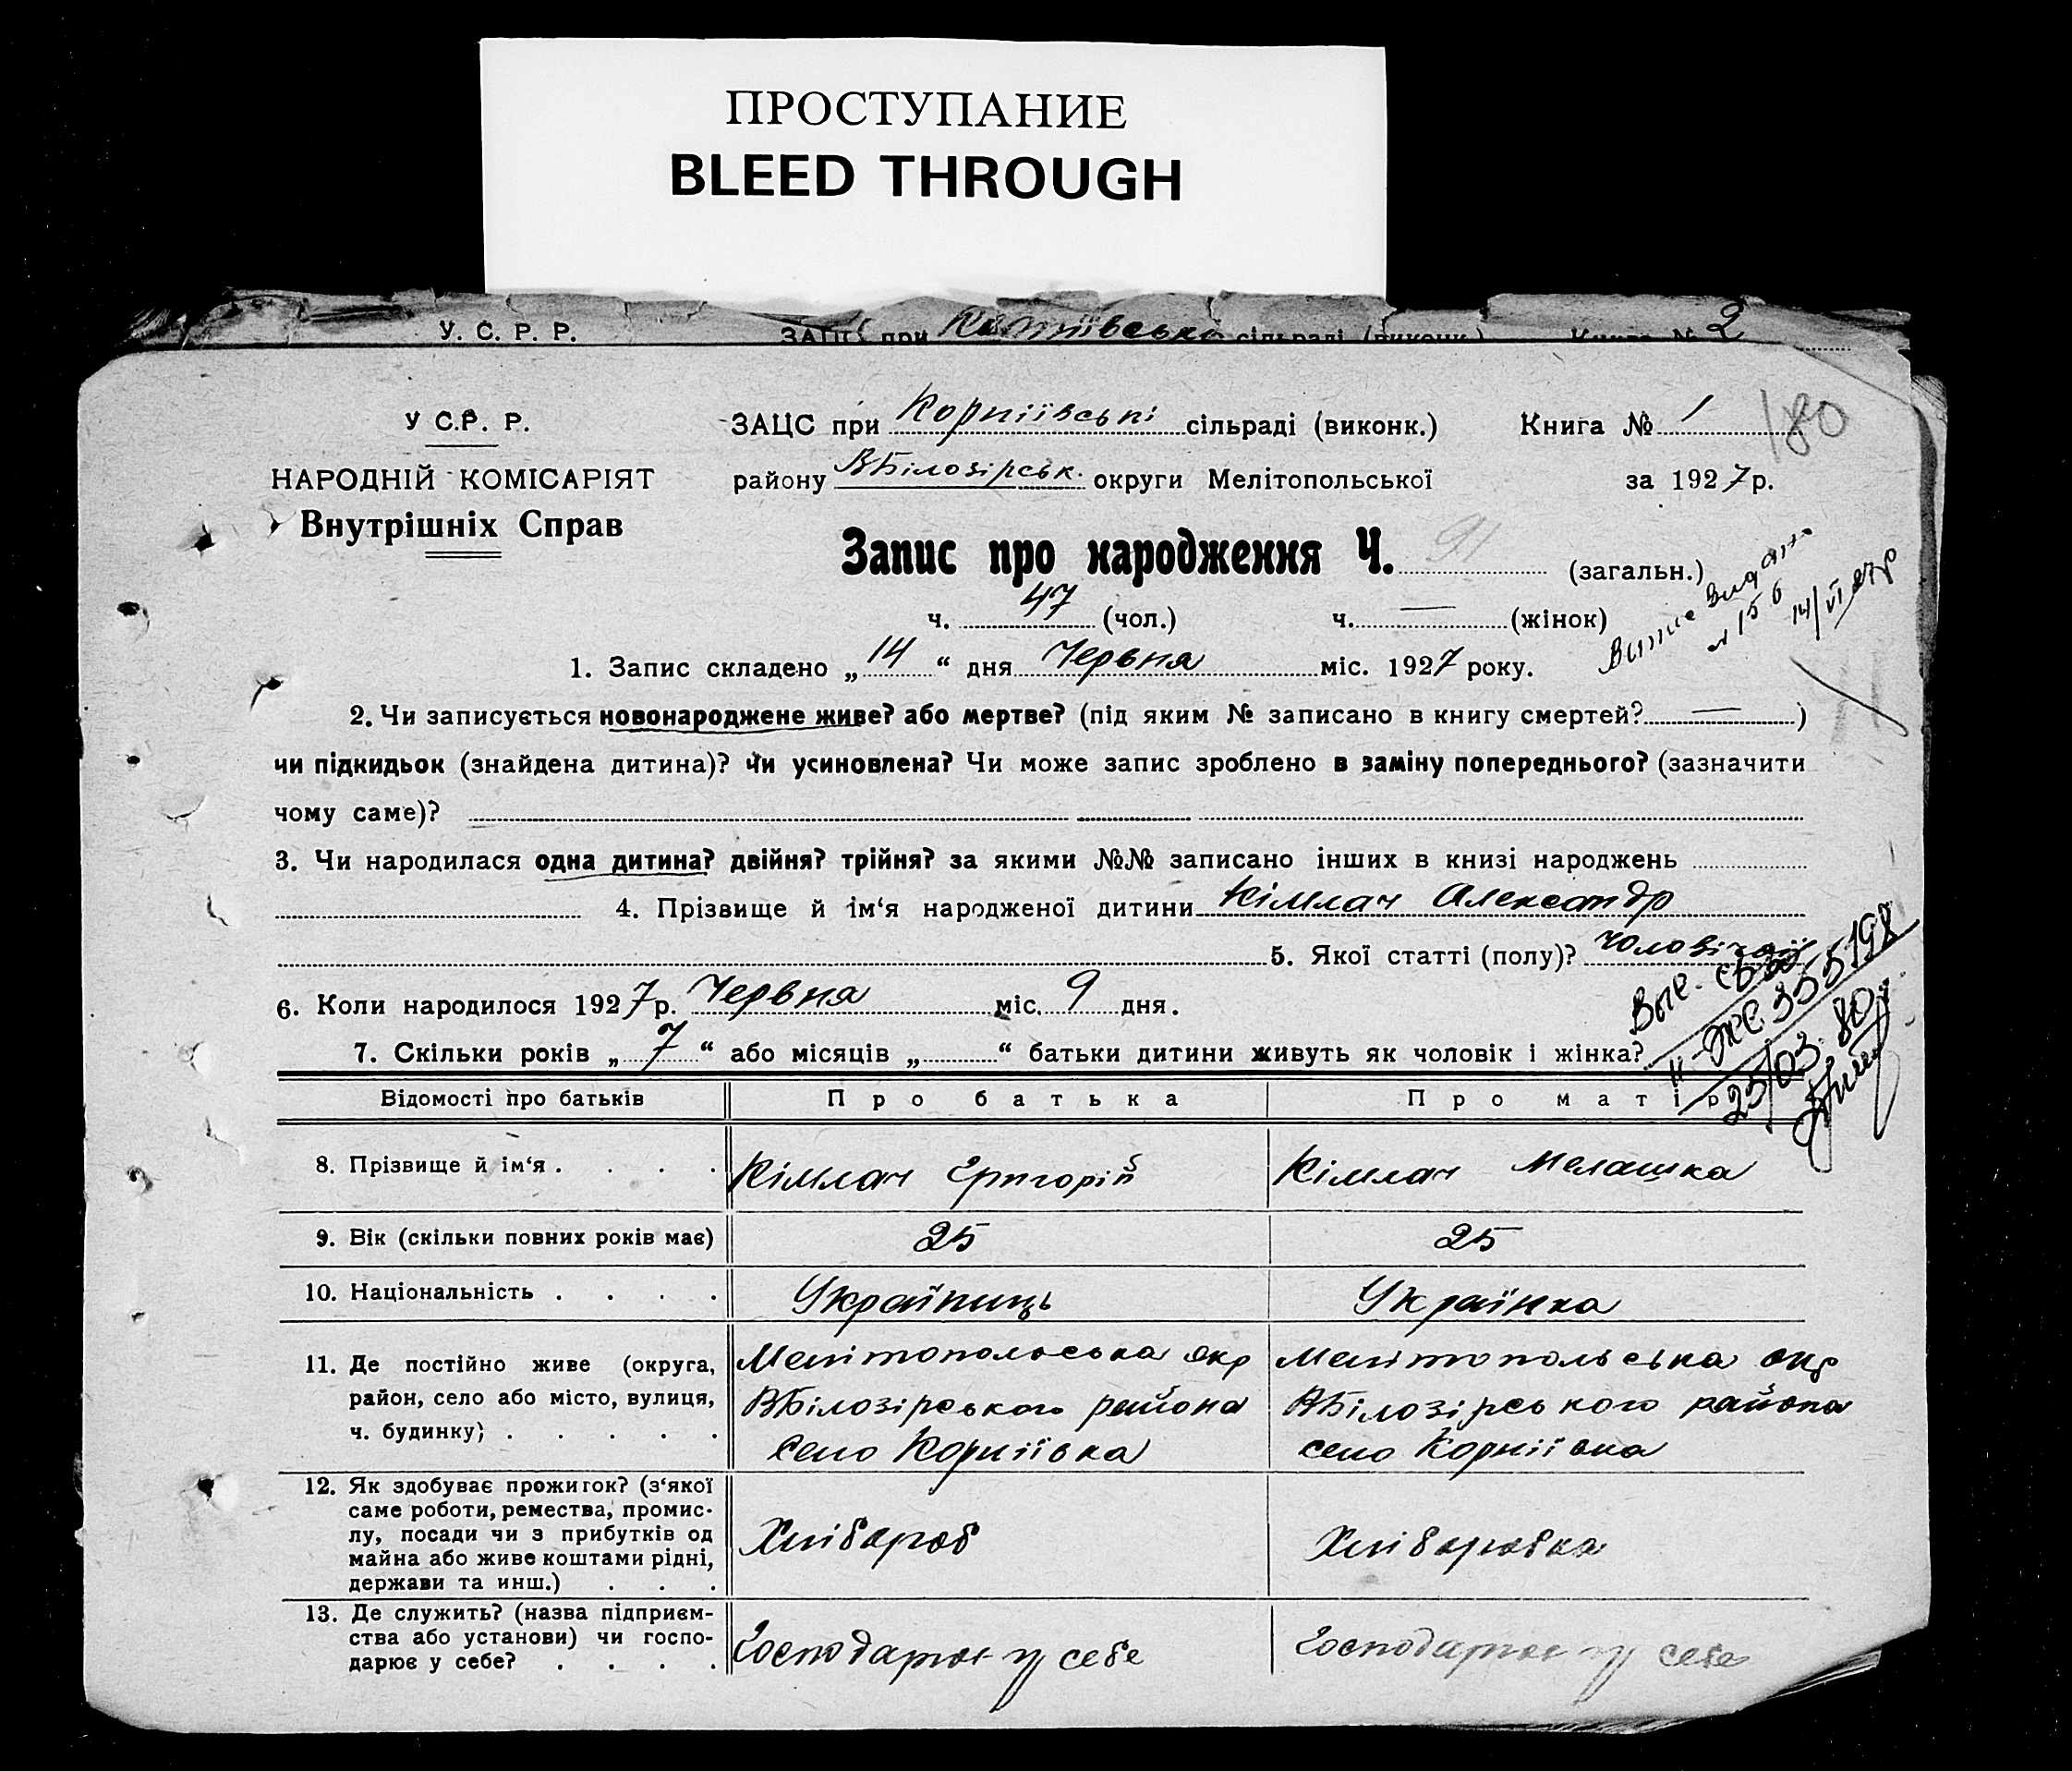 ПРОСТУПАНИЕ
BLEED THROUGH
У. С. Р. Р. ЗАЦС при сільраді (виконк.) Книга № 2
У С.Р. Р. ЗАЦС при Корніївські сільраді (виконк.) Книга № 1 180
НАРОДНІЙ КОМІСАРІЯТ району ВБілозірськ. округи Мелітопольської за 1927 р.
Внутрішніх Справ
Запис про народження Ч. 91 (загальн.)
ч. 47 (чол.) ч. — (жінок)
Витяг видано
№ 156
14/VI 27р
1. Запис складено „14“ дня Червня міс. 1927 року.
2. Чи записується новонароджене живе? або мертве? (під яким № записано в книгу смертей? — )
чи підкидьок (знайдена дитина)? Чи усиновлена? Чи може запис зроблено в заміну попереднього? (зазначити
чому саме)?
3. Чи народилася одна дитина? двійня? трійня? за якими №№ записано інших в книзі народжень
4. Прізвище й ім‘я народженої дитини Кімлач Александр
5. Якої статті (полу)? Чоловічої
6. Коли народилося 1927 р. Червня міс. 9 дня.
7. Скільки років „7“ або місяців „ “ батьки дитини живуть як чоловік і жінка?
355198
25/03.80
Відомості про батьків Про батька Про матір
8. Прізвище й ім‘я . . . . Кімлач Григорій Кімлач Мелашка
9. Вік (скільки повних років має) 25 25
10. Національність . . . . Україниць Українка
11. Де постійно живе (округа, Мелітопольська окр Мелітопольська окр
район, село або місто, вулиця, ВБілозірського района ВБілозірського района
ч. будинку) . . . . . село Корніївка село Корніївка
12. Як здобуває прожиток? (з‘якої
саме роботи, ремества, промис-
лу, посади чи з прибутків од Хлібароб Хлібаробка
майна або живе коштами рідні,
держави та инш.) . . .
13. Де служить? (назва підприєм-
ства або установи) чи госпо- Господарює у себе Господарює у себе
дарює у себе? . . . .